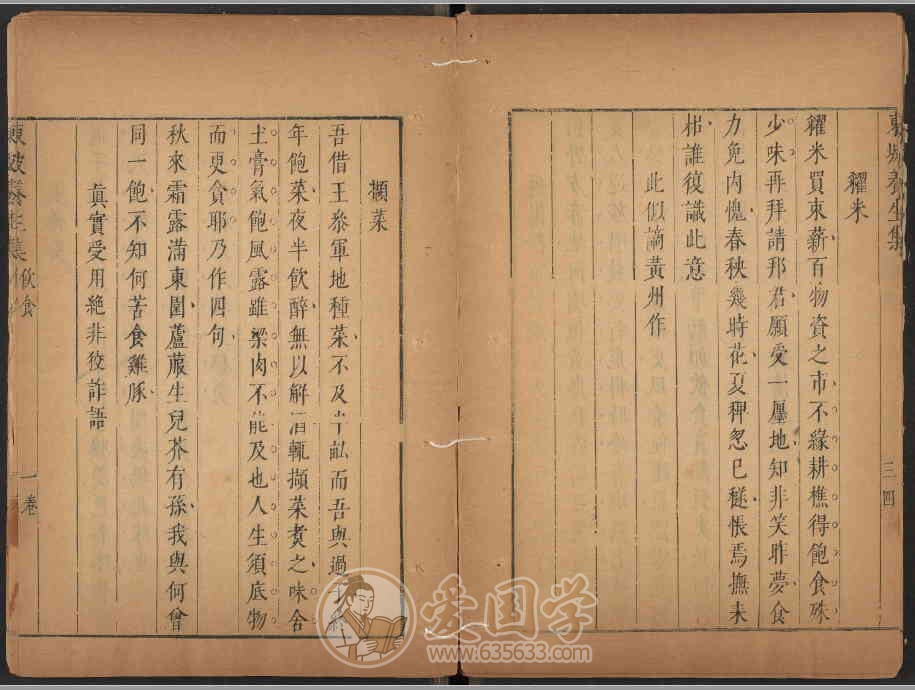 東坡養生集
三四
糴米
糴米買束薪百物資之市不緣耕樵得飽食殊
少味再拜請邦君願受一廛地知非笑昨夢食
力免内愧春秧幾時花夏稗忽已穟悵焉撫耒
耜誰復識此意
此似謫黃州作
擷菜
吾借王叅軍地種菜不及半畝而吾與過子
年飽菜夜半飲醉無以解酒輒擷菜煑之味含
土膏氣飽風露雖粱肉不能及也人生須底物
而更貪耶乃作四句
秋來霜露滿東園蘆菔生兒芥有孫我與何曾
同一飽不知何苦食雞豚
眞實受用絶非狡詐語
東坡養生集
飲食
一卷
爱国学
www.635633.com